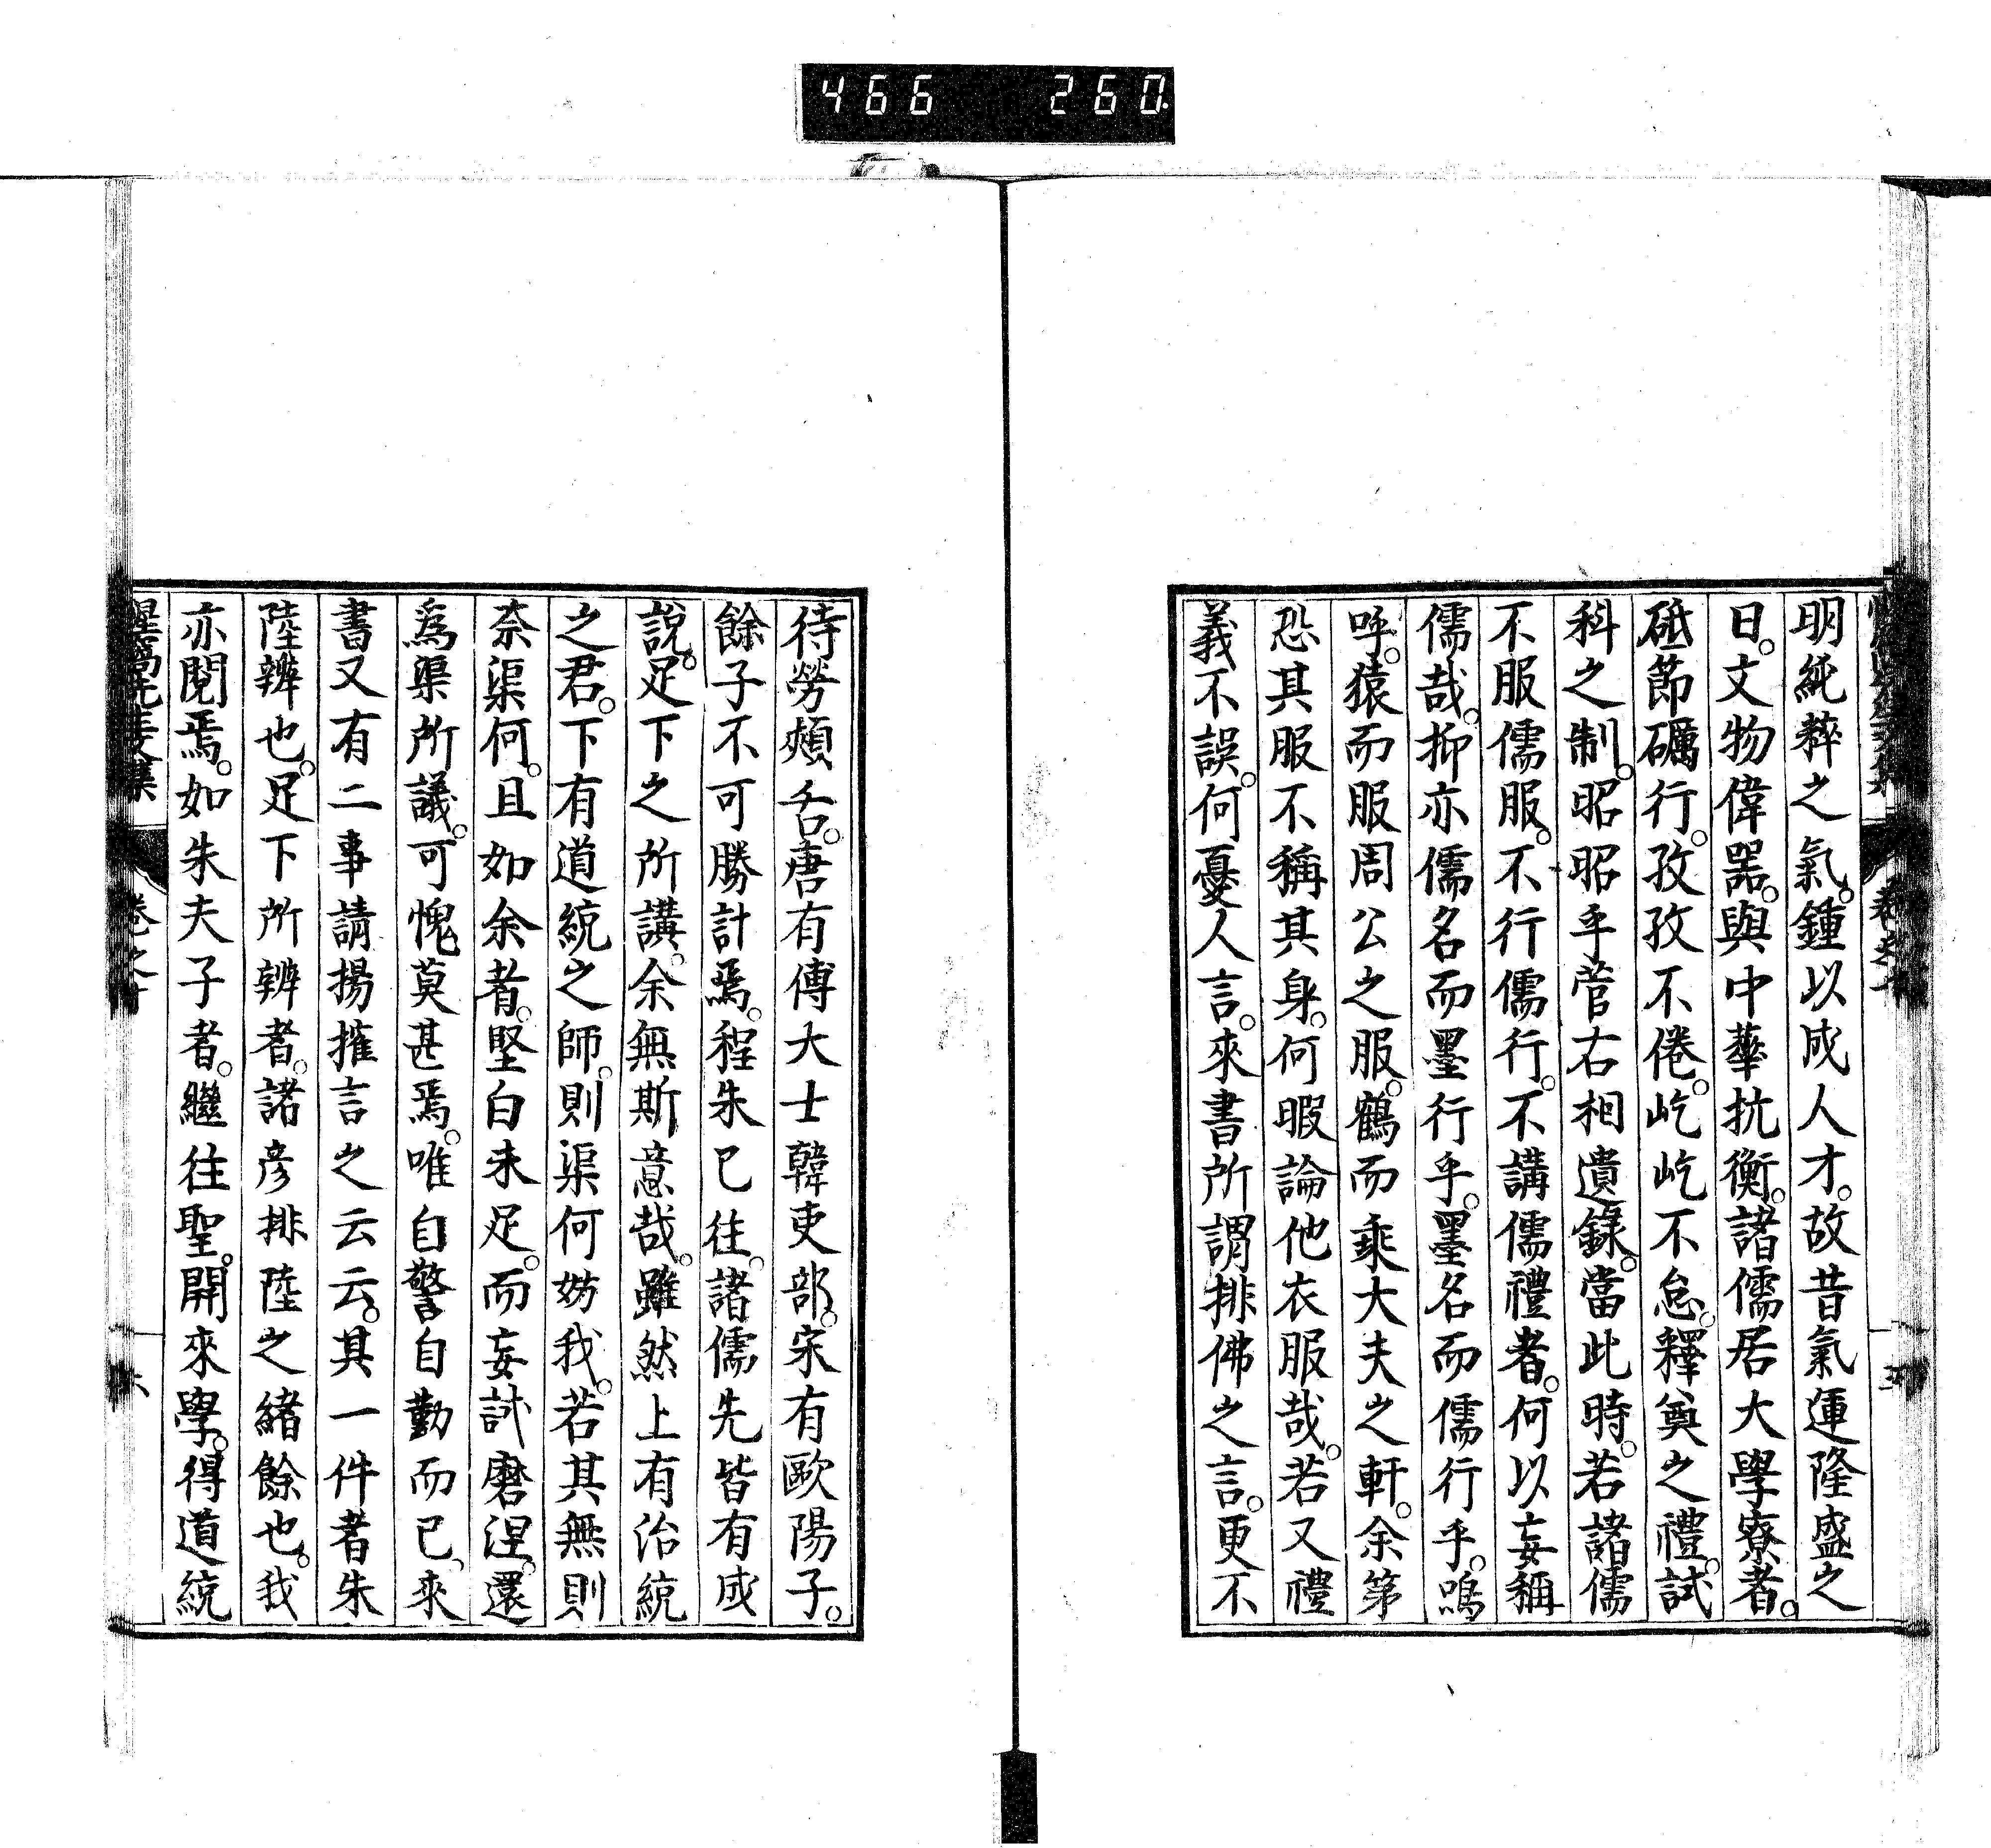 466 260
明純粹之氣。鍾以成人才。故昔氣運隆盛之
日。文物偉器。與中華抗衡。諸儒居大學寮者。
砥節礪行。孜孜不倦。屹屹不怠。釋奠之禮。試
科之制。昭昭乎菅右相遺錄。當此時。若諸儒
不服儒服。不行儒行。不講儒禮者。何以妄稱
儒哉。抑亦儒名而墨行乎。墨名而儒行乎。嗚
呼。猿而服周公之服。鶴而乘大夫之軒。余第
恐其服不稱其身。何暇論他衣服哉。若又禮
義不誤。何憂人言。來書所謂排佛之言。更不
待勞頰舌。唐有傅大士韓吏部。宋有歐陽子。
餘子不可勝計焉。程朱已往。諸儒先皆有成
說。足下之所講。余無斯意哉。雖然上有治統
之君。下有道統之師。則渠何妨我。若其無則
奈渠何。且如余者。堅白未足。而妄試磨涅。還
爲渠所議。可愧莫甚焉。唯自警自勤而已、來
書又有二事請揚搉言之云云。其一件者朱
陸辨也。足下所辨者。諸彦排陸之緒餘也。我
亦閱焉。如朱夫子者。繼往聖。開來學。得道統